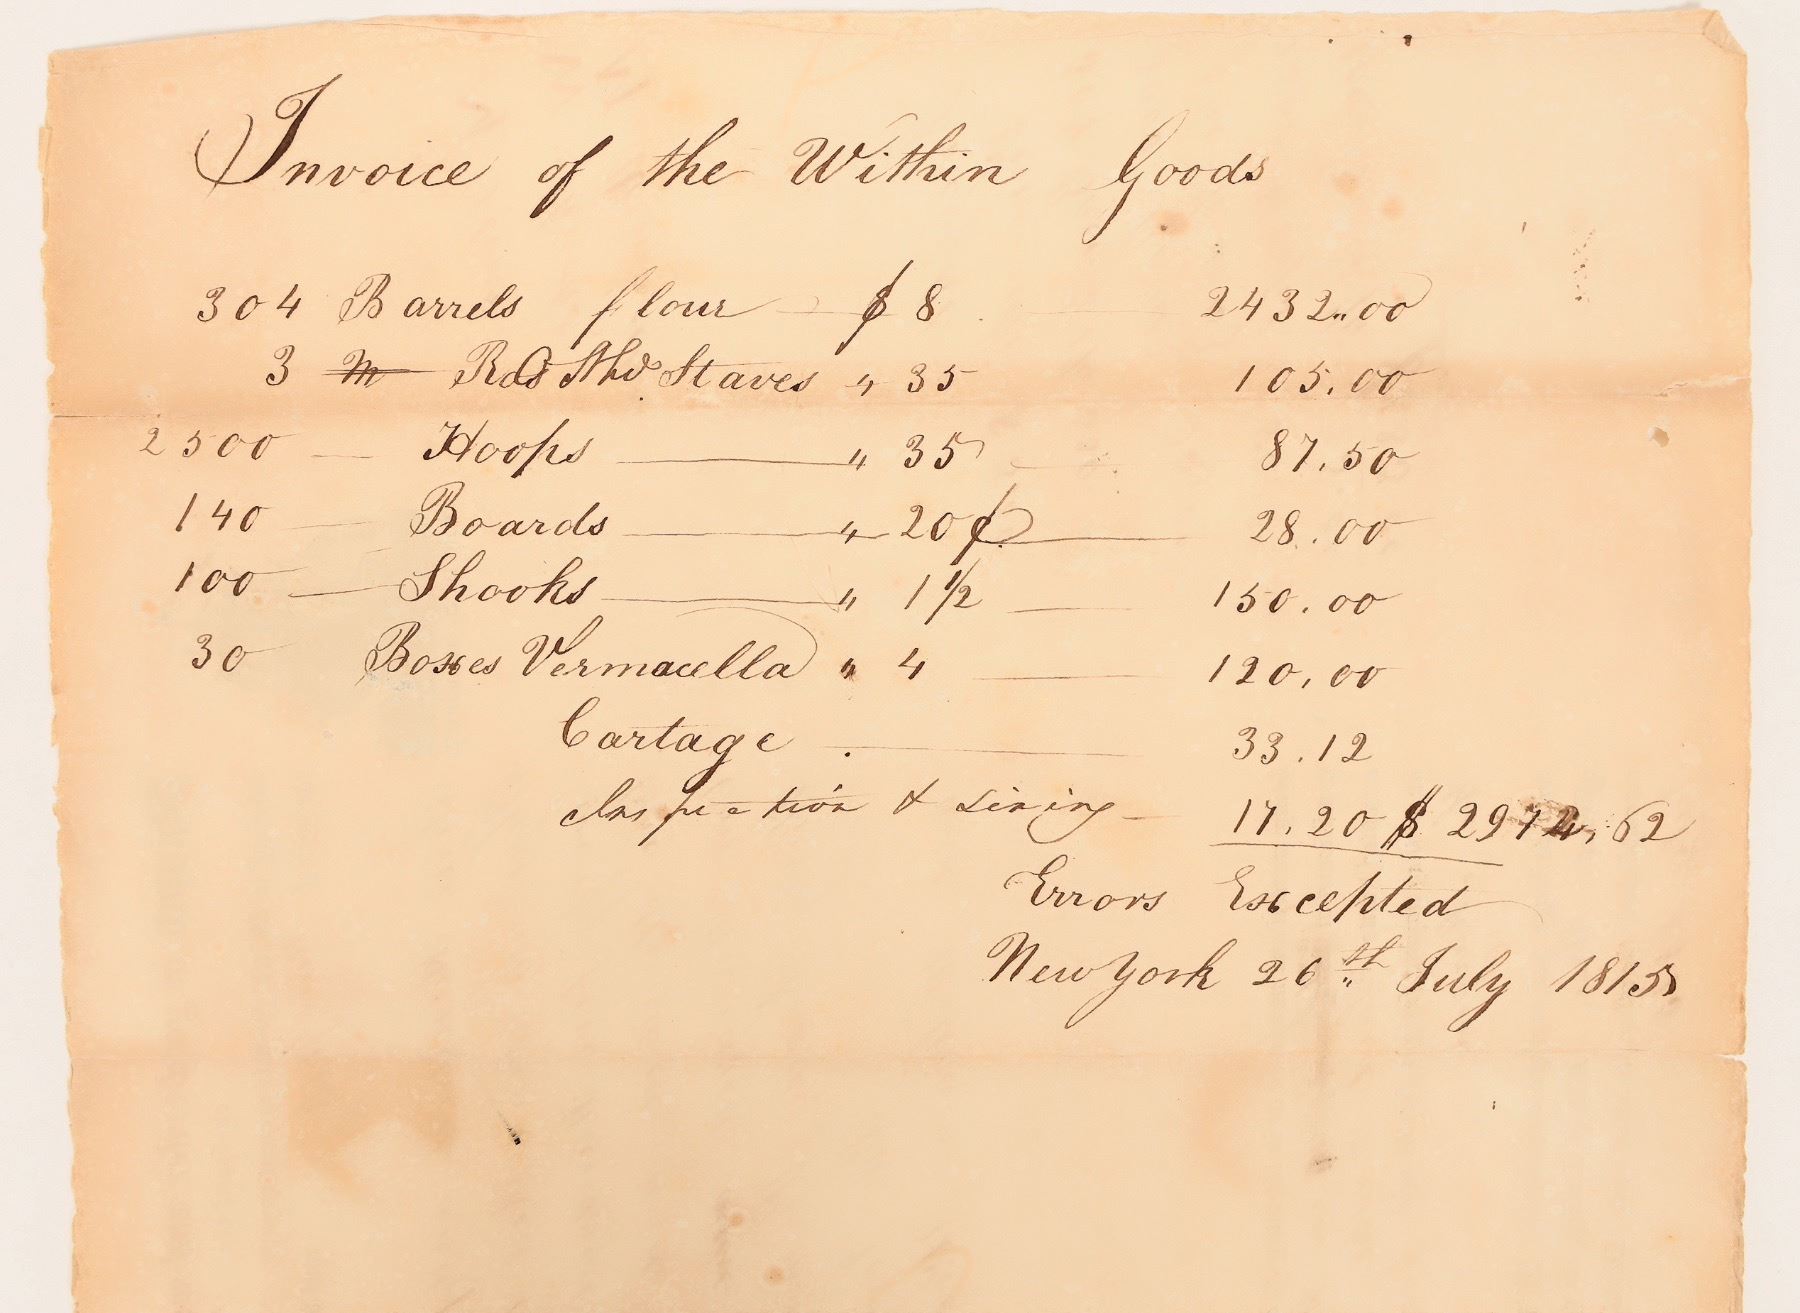 Invoice of the Within Goods
304 Barrels flour $ 8 2432.00
3 M Staves " 35 105.00
2500 Hoops " 35 87.50
140 Boards " 20¢ 28.00
100 Shooks " 1 1/2 150.00
30 Boxes Vermacella " 4 120.00
Cartage 33.12
Inspection & Lining 17.20 $
Errors Excepted
New York 26th July 1815